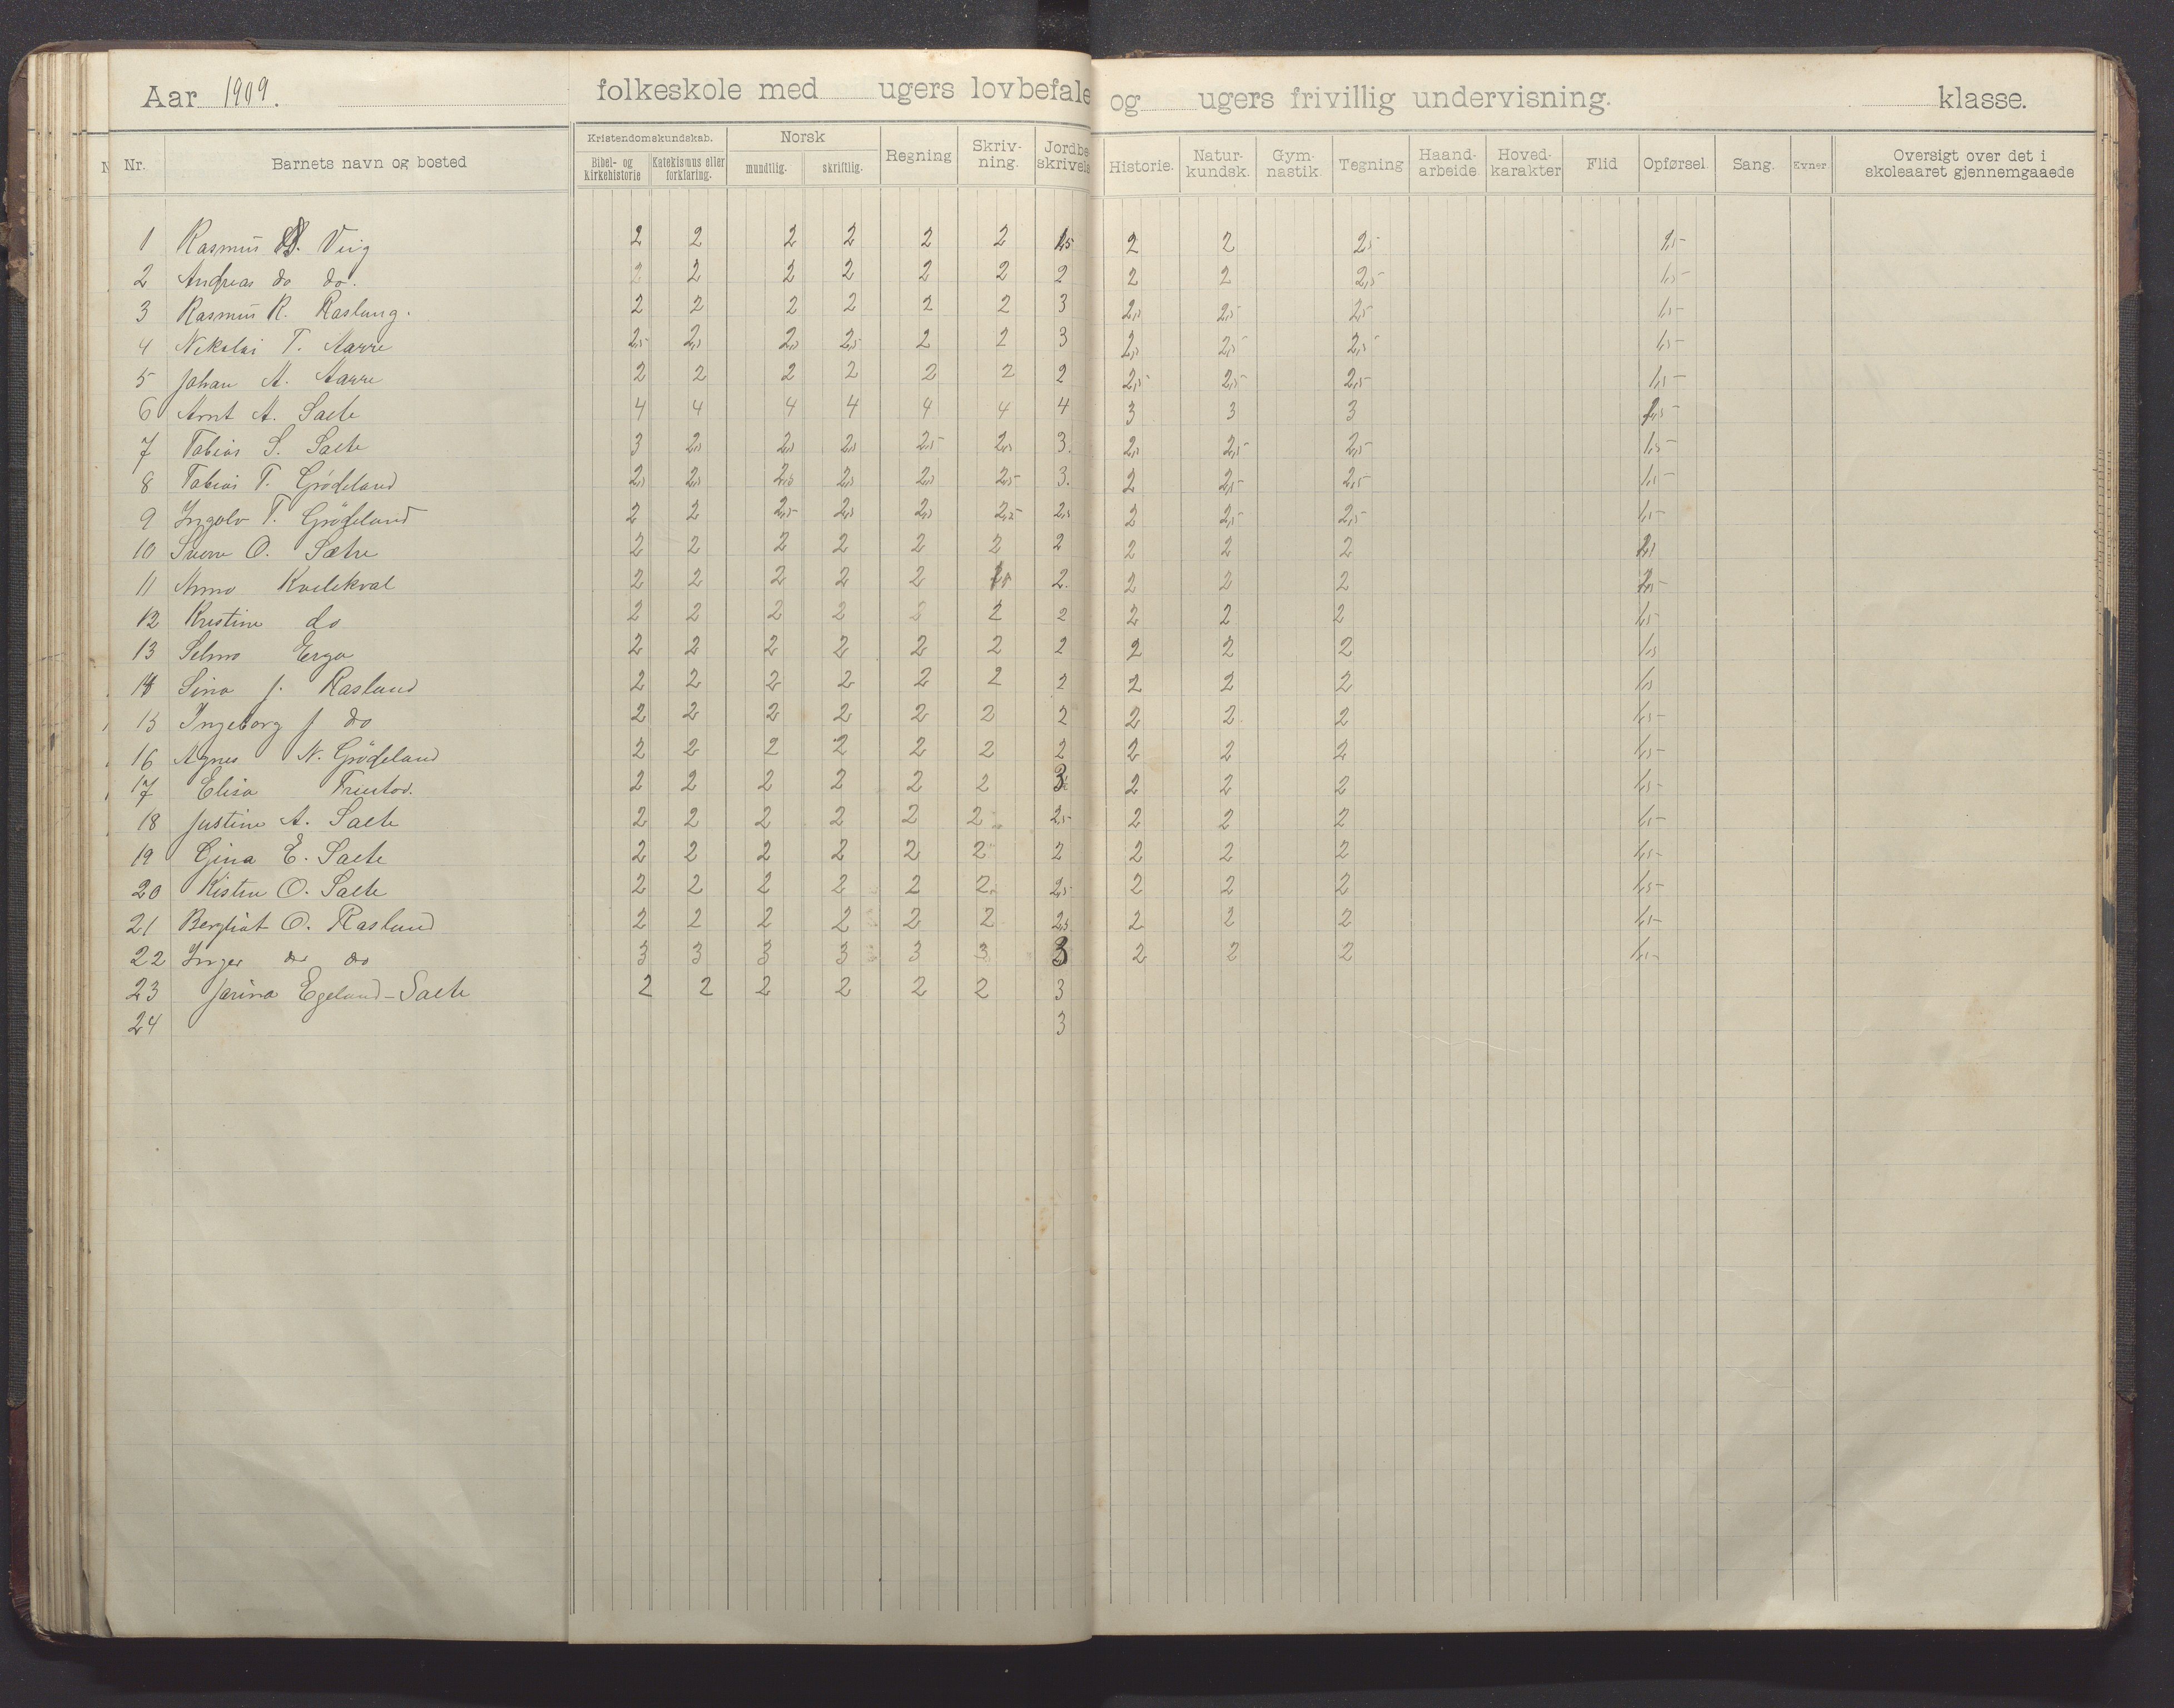 Aar 1909. folkeskole med ugers lovbefale og ugers frivillig undervisning. klasse.
Nr. Barnets navn og bosted Kristendomskundskab. Bibel- og kirkehistorie Katekismus eller forklaring. Norsk mundtlig. skriftlig. Regning Skriv-ning. Jordbe skrivels Historie. Natur-kundsk. Gym-nastik. Tegning Haand-arbeide Hoved-karakter Flid Opførsel Sang. Evner Oversigt over det i skoleaaret gjennemgaaede
1 Rasmus Viig 2 2 2 2 2 2 1,5 2 2 2,5 1,5
2 Andreas do do. 2 2 2 2 2 2 2 2 2 2,5 1,5
3 Rasmus R. Raslung. 2 2 2 2 2 2 3 2,5 2,5 2,5 1,5
4 Nikolai T. Aarre 2,5 2,5 2,5 2,5 2 2 3 2,5 2,5 2,5 1,5
5 Johan A. Aarre 2 2 2 2 2 2 2 2,5 2,5 2,5 1,5
6 Arnt A. Salte 4 4 4 4 4 4 4 3 3 3
7 Tobias S. Salte 3 2,5 2,5 2,5 2,5 2,5 3. 2,5 2,5 2,5 1,5
8 Tobias T. Grödeland 2,5 2,5 2,5 2,5 2,5 2,5 3. 2 2,5 2,5 1,5
9 Ingolv T. Grödeland 2 2 2,5 2,5 2,5 2,5 2,5 2 2,5 2,5 1,5
10 Sverre O. Sætre 2 2 2 2 2 2 2 2 2 2
11 Anna Kvilekval 2 2 2 2 2 1,5 2. 2 2 2
12 Kristine do 2 2 2 2 2 2 2 2 2 2 1,5
13 Selma Erga 2 2 2 2 2 2 2 2 2 2 1,5
14 Sina J. Raslund 2 2 2 2 2 2 2 2 2 2 1,5
15 Ingeborg J do 2 2 2 2 2 2 2 2 2 2 1,5
16 Agnes N. Grödeland 2 2 2 2 2 2 2 2 2 2 1,5
17 Elisa 2 2 2 2 2 2 3 2 2 2 1,5
18 Justine A. Salte 2 2 2 2 2 2 2,5 2 2 2 1,5
19 Gina E. Salte 2 2 2 2 2 2 2 2 2 2 1,5
20 Kistru O. Salte 2 2 2 2 2 2 2,5 2 2 2 1,5
21 Bergliot O. Raslund 2 2 2 2 2 2 2,5 2 2 2 1,5
22 Inger do do 3 3 3 3 3 3 3 2 2 2 1,5
23 Jarina Egeland-Salte 2 2 2 2 2 2 3
24 3